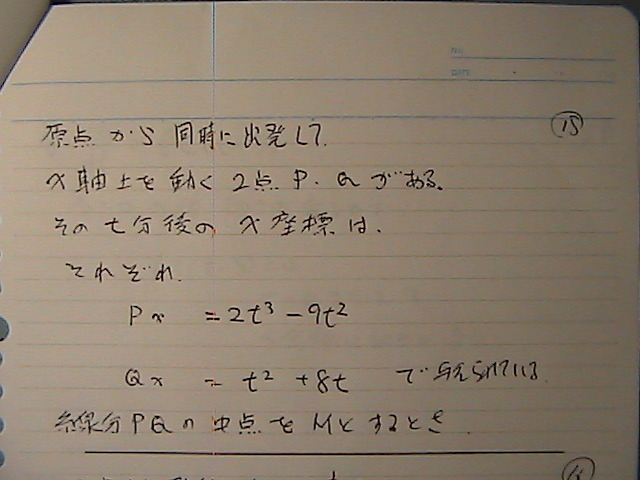 No.
DATE
⑮
原点から同時に出発して、
x軸上を動く2点P.Qがある。
そのt分後のx座標は、
それぞれ、
Px = 2t³ - 9t²
Qx = t² + 8t で与えられている。
線分PQの中点をMとするとき、